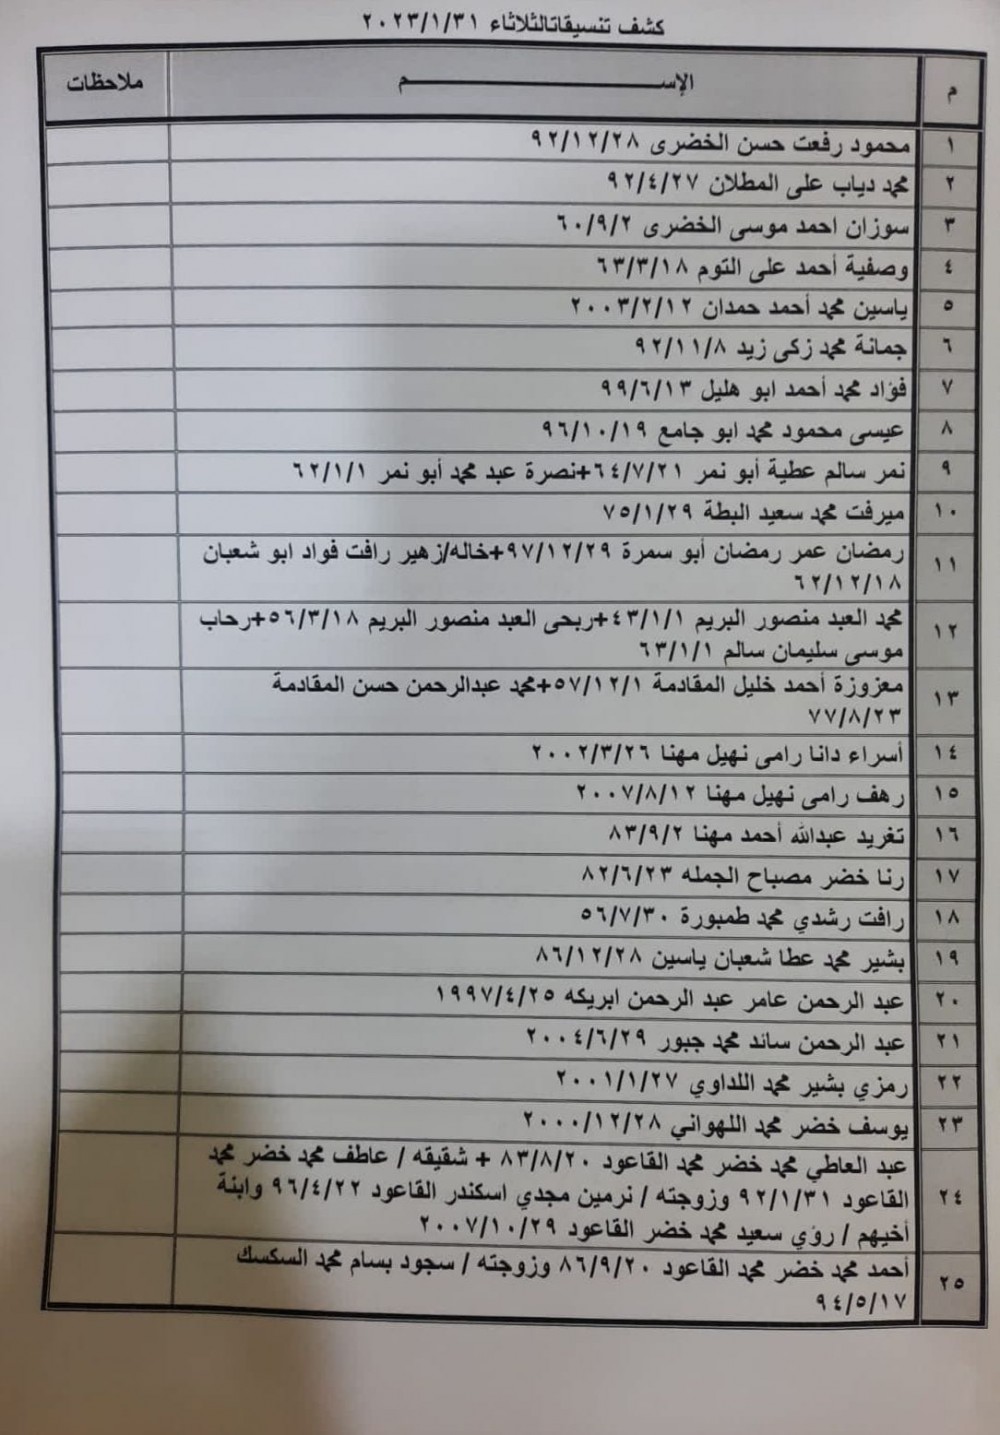 كشف تنسيقاتالثلاثاء ٢٠٢٣/١/٣١
م الإســـــــــــــم ملاحظات
١ محمود رفعت حسن الخضرى ٩٢/١٢/٢٨
٢ محمد دياب على المطلان ٩٢/٤/٢٧
٣ سوزان احمد موسى الخضرى ٦٠/٩/٢
٤ وصفية أحمد على التوم ٦٣/٣/١٨
٥ ياسين محمد أحمد حمدان ٢٠٠٣/٢/١٢
٦ جمانة محمد زكى زيد ٩٢/١١/٨
٧ فؤاد محمد أحمد ابو هليل ٩٩/٦/١٣
٨ عيسى محمود محمد ابو جامع ٩٦/١٠/١٩
٩ نمر سالم عطية أبو نمر ٦٤/٧/٢١+نصرة عبد محمد أبو نمر ٦٢/١/١
١٠ ميرفت محمد سعيد البطة ٧٥/١/٢٩
١١ رمضان عمر رمضان أبو سمرة ٩٧/١٢/٢٩+خاله/زهير رافت فواد ابو شعبان
٦٢/١٢/١٨
١٢ محمد العبد منصور البريم ٤٣/١/١+ربحى العبد منصور البريم ٥٦/٣/١٨+رحاب
موسى سليمان سالم ٦٣/١/١
١٣ معزوزة أحمد خليل المقادمة ٥٧/١٢/١+محمد عبدالرحمن حسن المقادمة
٧٧/٨/٢٣
١٤ أسراء دانا رامى نهيل مهنا ٢٠٠٢/٣/٢٦
١٥ رهف رامى نهيل مهنا ٢٠٠٧/٨/١٢
١٦ تغريد عبدالله أحمد مهنا ٨٣/٩/٢
١٧ رنا خضر مصباح الجمله ٨٢/٦/٢٣
١٨ رافت رشدي محمد طمبورة ٥٦/٧/٣٠
١٩ بشير محمد عطا شعبان ياسين ٨٦/١٢/٢٨
٢٠ عبد الرحمن عامر عبد الرحمن ابريكه ١٩٩٧/٤/٢٥
٢١ عبد الرحمن سائد محمد جبور ٢٠٠٤/٦/٢٩
٢٢ رمزي بشير محمد اللداوي ٢٠٠١/١/٢٧
٢٣ يوسف خضر محمد اللهواني ٢٠٠٠/١٢/٢٨
٢٤ عبد العاطي محمد خضر محمد القاعود ٨٣/٨/٢٠ + شقيقه / عاطف محمد خضر محمد
القاعود ٩٢/١/٣١ وزوجته / نرمين مجدي اسكندر القاعود ٩٦/٤/٢٢ وابنة
أخيهم / رؤي سعيد محمد خضر القاعود ٢٠٠٧/١٠/٢٩
٢٥ أحمد محمد خضر محمد القاعود ٨٦/٩/٢٠ وزوجته / سجود بسام محمد السكسك
٩٤/٥/١٧